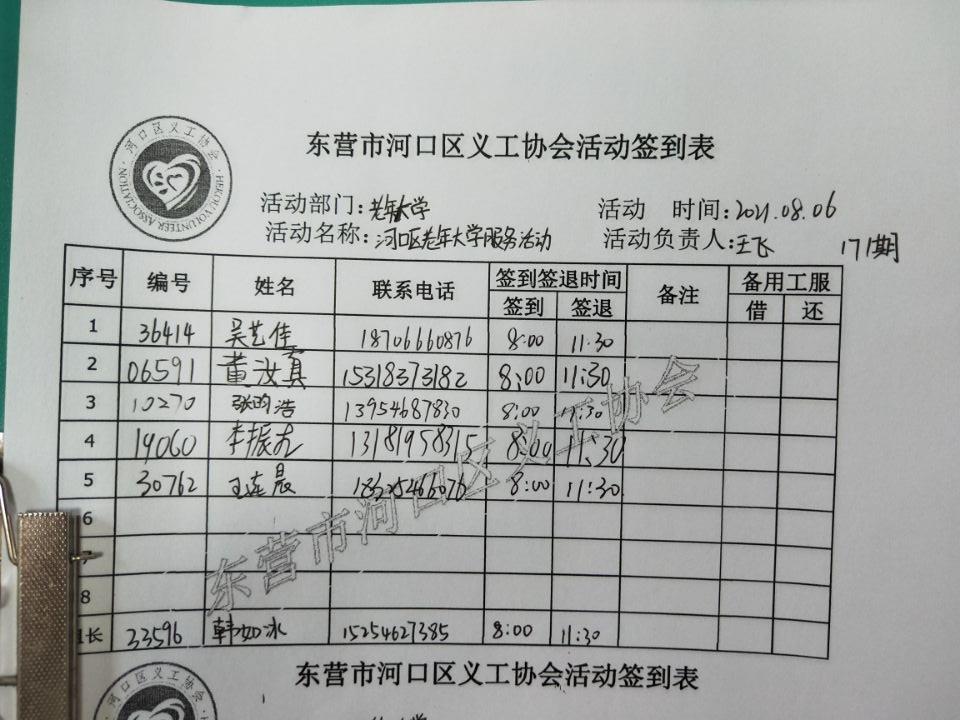 河口区义工协会
HEKOU VOLUNTEER ASSOCIATION
东营市河口区义工协会活动签到表
活动部门:老年大学 活动 时间:2021.08.06
活动名称:河口区老年大学服务活动 活动负责人:王飞 171期
序号 编号 姓名 联系电话 签到签退时间 备注 备用工服
签到 签退 借 还
1 36414 吴艺佳 18706660876 8:00 11:30
2 06591 董汝真 15318373182 8:00 11:30
3 10270 张昀浩 13954687830 8:00 11:30
4 14060 李振 13181958315 8:00 11:30
5 30762 王连晨 8:00 11:30
6
7
8
组长 33596 韩如冰 15254627385 8:00 11:30
东营市河口区义工协会
东营市河口区义工协会活动签到表
河口区义工协会